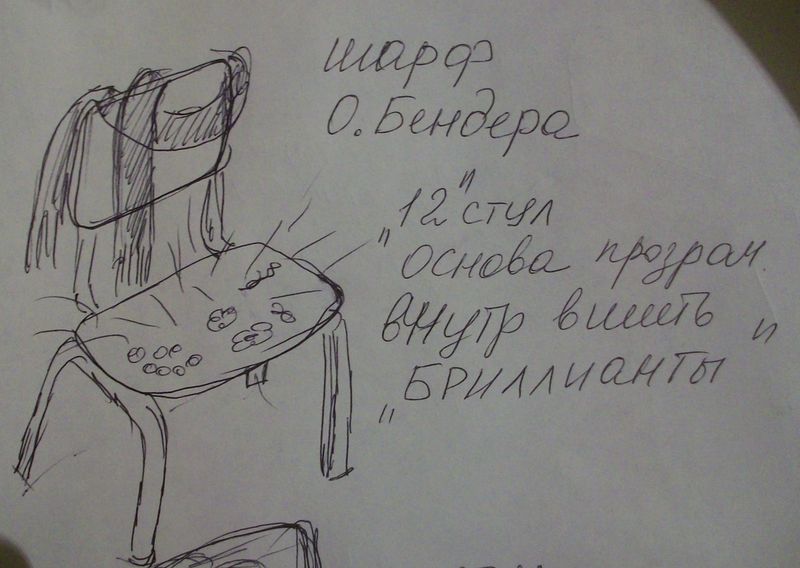 шарф
О. Бендера
„12" стул
"основа прозрач.
внутр вшить "
„БРИЛЛИАНТЫ